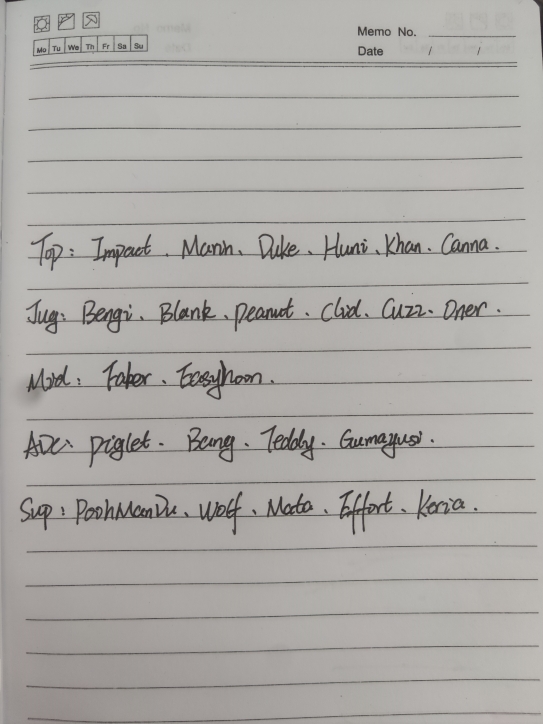 Mo Tu We Th Fr Sa Su
Memo No.
Date / /
Top: Impact. Marin. Duke. Huni. Khan. Canna.
Jug: Bengi. Blank. Peanut. Clid. Cuzz. Oner.
Mid: Faker. Easyhoon.
ADC: Piglet. Bang. Teddy. Gumayusi.
Sup: PoohManDu. Wolf. Mata. Effort. Keria.